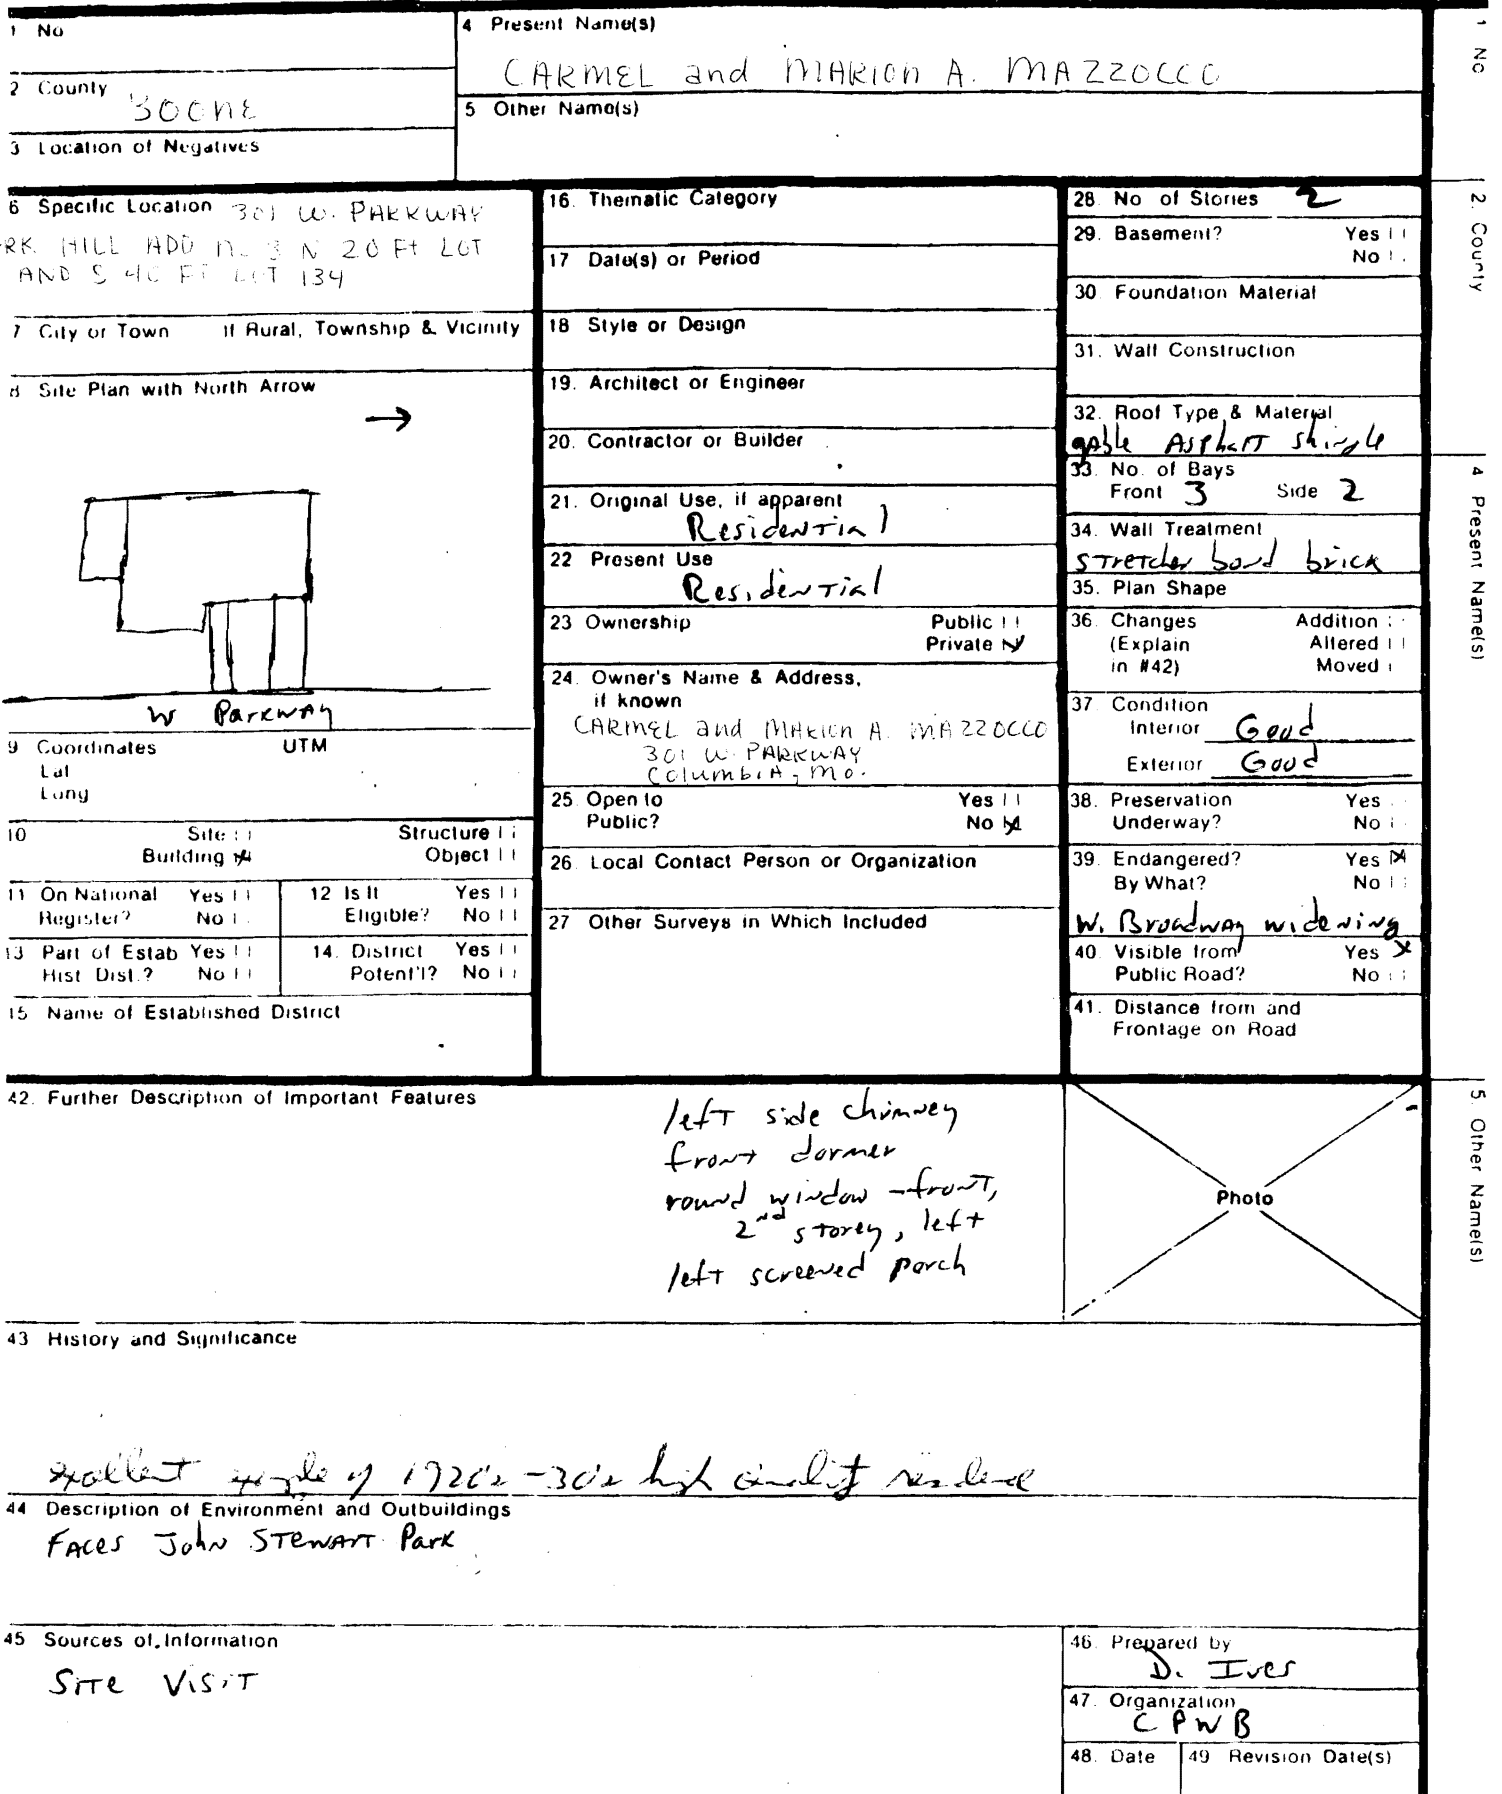 1 No
4 Present Name(s)
CARMEL and MARION A. MAZZOCCO
2 County
BOONE
5 Other Name(s)
3 Location of Negatives
6 Specific Location 301 W. PARKWAY
RK HILL ADD n. 3 N 20 Ft LOT
AND S 40 FT LOT 134
7 City or Town If Rural, Township & Vicinity
8 Site Plan with North Arrow
W Parkway
9 Coordinates UTM
Lat
Long
10 Site
Structure
Building
Object
11 On National Register? Yes No
12 Is It Eligible? Yes No
13 Part of Estab Hist Dist.? Yes No
14. District Potent'l? Yes No
15 Name of Established District
16. Thematic Category
17 Date(s) or Period
18 Style or Design
19. Architect or Engineer
20. Contractor or Builder
21. Original Use, if apparent
Residential
22 Present Use
Residential
23 Ownership Public
Private
24. Owner's Name & Address,
if known
CARMEL and MARION A. MAZZOCCO
301 W. PARKWAY
Columbia, Mo.
25. Open to Yes
Public? No
26. Local Contact Person or Organization
27 Other Surveys in Which Included
28. No of Stories 2
29. Basement? Yes
No
30. Foundation Material
31. Wall Construction
32. Roof Type & Material
gable Asphalt shingle
33. No. of Bays
Front 3 Side 2
34. Wall Treatment
stretcher bond brick
35. Plan Shape
36. Changes Addition
(Explain Altered
in #42) Moved
37. Condition
Interior Good
Exterior Good
38. Preservation Yes
Underway? No
39. Endangered? Yes
By What? No
W. Broadway widening
40. Visible from Yes
Public Road? No
41. Distance from and
Frontage on Road
42. Further Description of Important Features
left side chimney
front dormer
round window - front,
2nd storey, left
left screened porch
Photo
43 History and Significance
excellent example of 1920's-30's high quality residence
44 Description of Environment and Outbuildings
Faces John Stewart Park
45 Sources of Information
Site Visit
46. Prepared by
D. Ives
47. Organization
CPWB
48. Date
49 Revision Date(s)
1 No
2. County
4 Present Name(s)
5. Other Name(s)